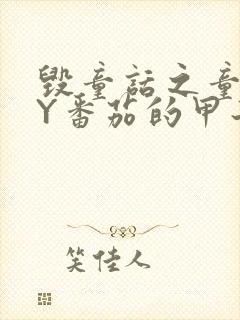 毁童话之童
Y番茄的甲
笑佳人